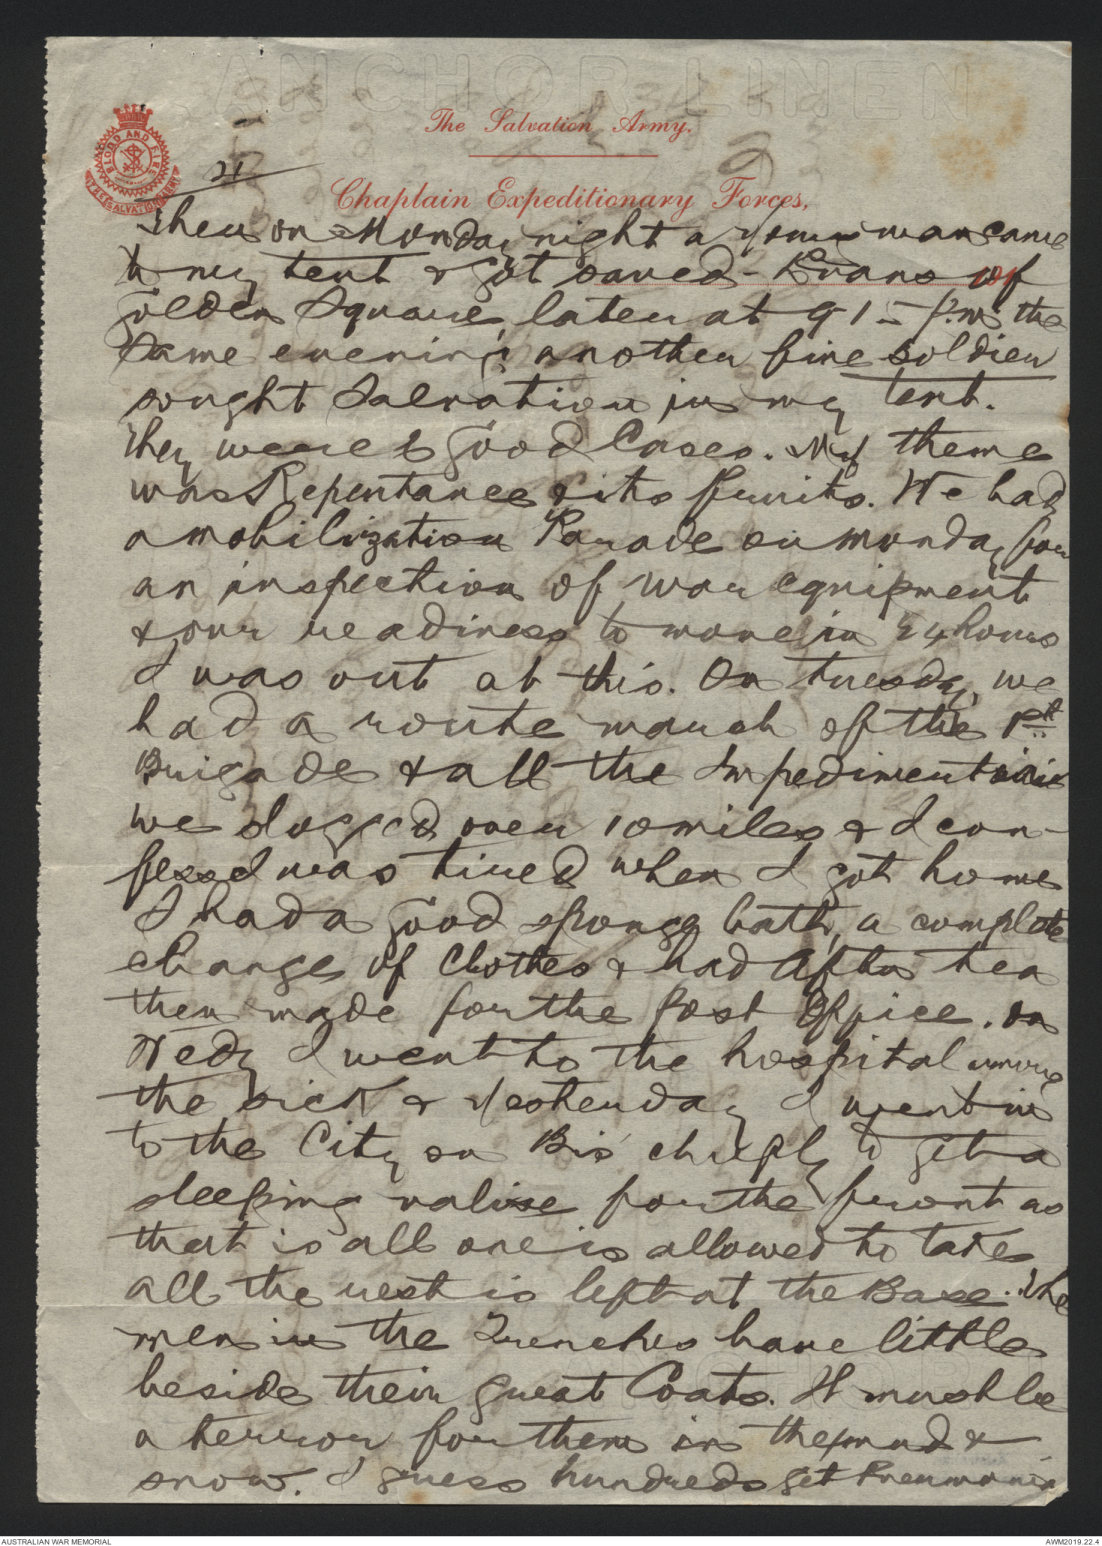 ANCHOR LINEN
The Salvation Army.
BLOOD AND FIRE
Chaplain Expeditionary Forces,
21
Then on Monday night a young man came
to my tent & got saved - Evans of
Golden Square, later at 9 15 p.m. the
same evening another fine soldier
sought Salvation in my tent.
They were 2 good Cases. My theme
was Repentance & its fruits. We had
a mobilization Parade on monday for
an inspection of war equipment
& our readiness to move in 24 hours
I was out at this. On tuesday, we
had a route march of the 1st
Brigade & all the Impedimenta
we slogged over 10 miles & I con-
fess I was tired when I got home
I had a good sponge bath, a complete
change of Clothes & had Aftn tea
then made for the Post Office. On
Wedy I went to the hospital among
the sick & Yesterday I went in
to the City on Bis chiefly to get a
sleeping valise for the front as
that is all one is allowed to take
all the rest is left at the Base. The
men in the Trenches have little
beside their great Coats. It must be
a terror for them in the mud &
snow. I guess hundreds get Pneumonia
AUSTRALIAN WAR MEMORIAL
AWM2019.22.4